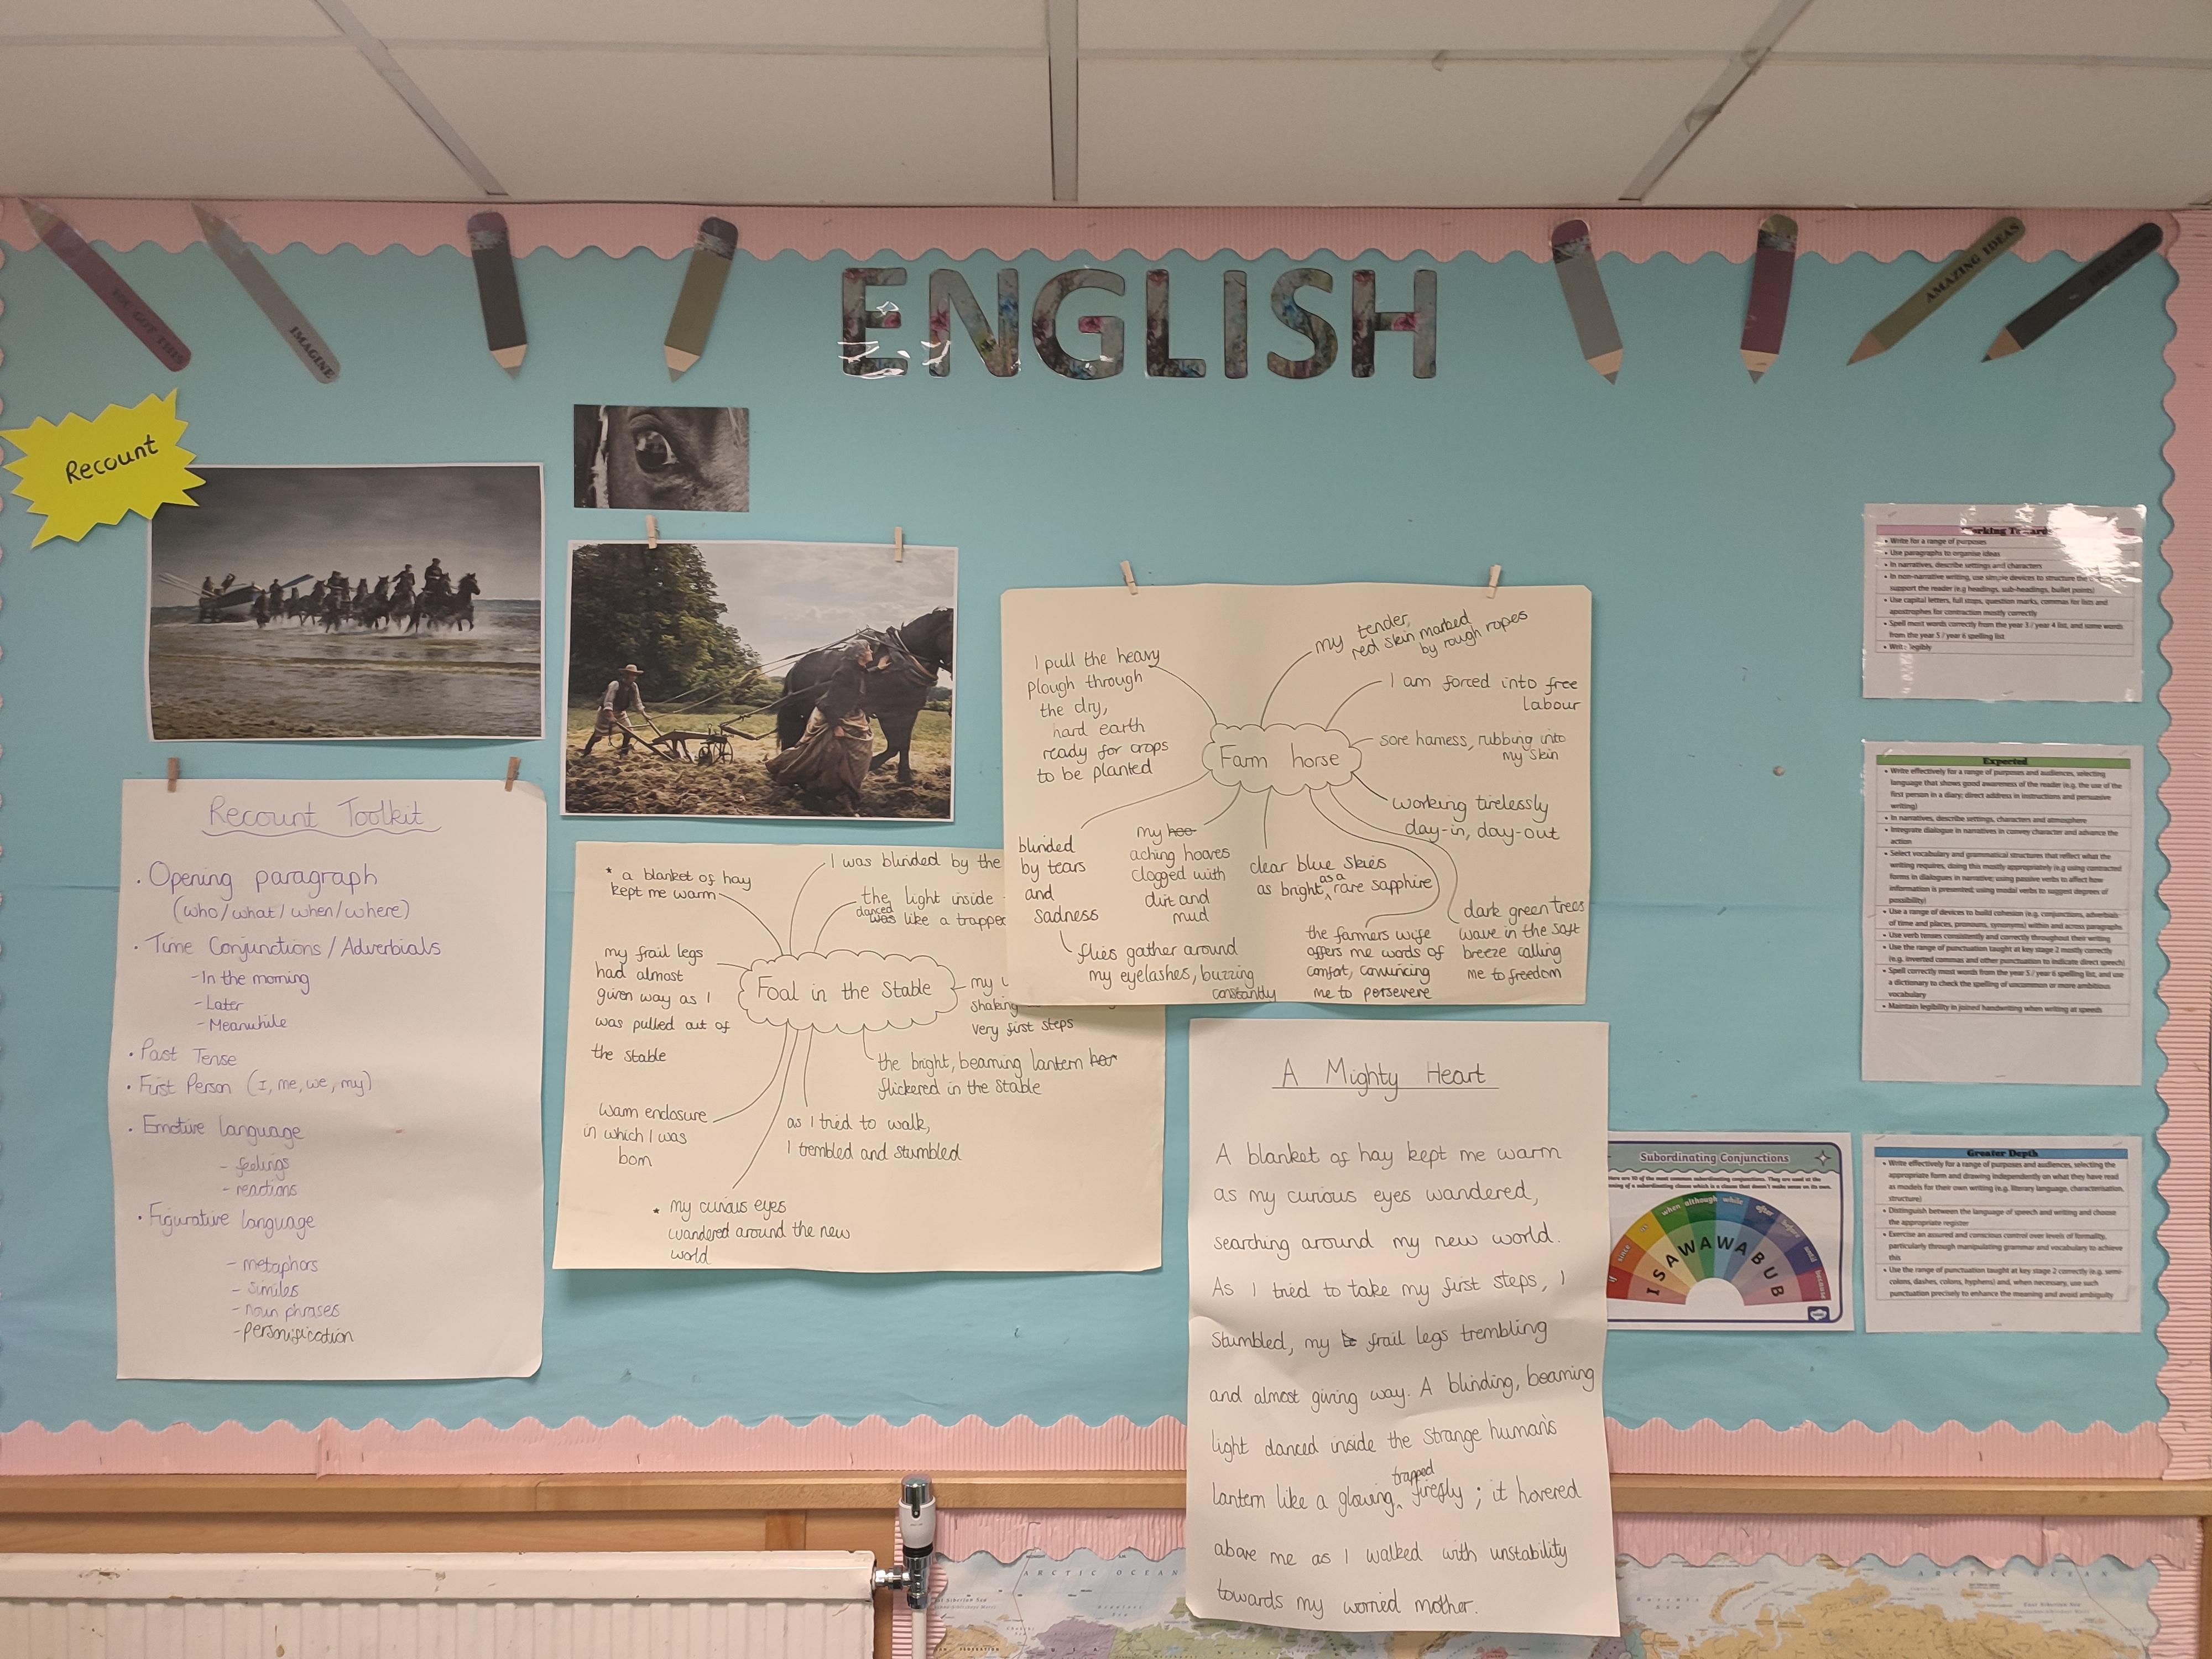 YOU GOT THIS
IMAGINE
AMAZING IDEAS
ENGLISH
Recount
Recount Toolkit
• Opening paragraph
(who/what/when/where)
• Time Conjunctions/Adverbials
- In the morning
- Later
- Meanwhile
• Past Tense
• First Person (I, me, we, my)
• Emotive language
- feelings
- reactions
• Figurative language
- metaphors
- similes
- noun phrases
- personification
* a blanket of hay
kept me warm
I was blinded by the
the light inside
danced
was like a trapped
my frail legs
had almost
given way as I
was pulled out of
the stable
Foal in the Stable
my
shaking
very first steps
the bright, beaming lantern
flickered in the stable
warm enclosure
in which I was
born
as I tried to walk,
I trembled and stumbled
* my curious eyes
wandered around the new
world
I pull the heavy
plough through
the dry,
hard earth
ready for crops
to be planted
my tender,
red skin marked
by rough ropes
I am forced into free
labour
Farm horse
sore harness, rubbing into
my skin
working tirelessly
day-in, day-out
blinded
by tears
and
sadness
flies gather around
my eyelashes, buzzing
constantly
my hoo
aching hooves
clogged with
dirt and
mud
clear blue skies
as a
as bright, rare sapphire
the farmers wife
offers me words of
comfort, convincing
me to persevere
dark green trees
wave in the soft
breeze calling
me to freedom
A Mighty Heart
A blanket of hay kept me warm
as my curious eyes wandered,
searching around my new world.
As I tried to take my first steps, I
stumbled, my frail legs trembling
and almost giving way. A blinding, beaming
light danced inside the strange human's
trapped
lantern like a glowing, firefly; it hovered
above me as I walked with unstability
towards my worried mother.
Working Towards
• Write for a range of purposes
• Use paragraphs to organise ideas
• In narratives, describe settings and characters
• In non-narrative writing, use simple devices to structure the
support the reader (e.g headings, sub-headings, bullet points)
• Use capital letters, full stops, question marks, commas for lists and
apostrophes for contraction mostly correctly
• Spell most words correctly from the year 3 / year 4 list, and some words
from the year 5 / year 6 spelling list
• Write legibly
Expected
• Write effectively for a range of purposes and audiences, selecting
language that shows good awareness of the reader (e.g. the use of the
first person in a diary; direct address in instructions and persuasive
writing)
• In narratives, describe settings, characters and atmosphere
• Integrate dialogue in narratives in convey character and advance the
action
• Select vocabulary and grammatical structures that reflect what the
writing requires, doing this mostly appropriately (e.g using contracted
forms in dialogues in narrative; using passive verbs to affect how
information is presented; using modal verbs to suggest degrees of
possibility)
• Use a range of devices to build cohesion (e.g. conjunctions, adverbials
of time and places, pronouns, synonyms) within and across paragraphs
• Use verb tenses consistently and correctly throughout their writing
• Use the range of punctuation taught at key stage 2 mostly correctly
(e.g. inverted commas and other punctuation to indicate direct speech)
• Spell correctly most words from the year 5 / year 6 spelling list, and use
a dictionary to check the spelling of uncommon or more ambitious
vocabulary
• Maintain legibility in joined handwriting when writing at speeds
Subordinating Conjunctions
if since as when although while after before until because
I SAWAWABUB
Greater Depth
• Write effectively for a range of purposes and audiences, selecting the
appropriate form and drawing independently on what they have read
as models for their own writing (e.g. literary language, characterisation,
structure)
• Distinguish between the language of speech and writing and choose
the appropriate register
• Exercise an assured and conscious control over levels of formality,
particularly through manipulating grammar and vocabulary to achieve
this
• Use the range of punctuation taught at key stage 2 correctly (e.g. semi-
colons, dashes, colons, hyphens) and, when necessary, use such
punctuation precisely to enhance the meaning and avoid ambiguity
ARCTIC OCEAN
ARCTIC OCEAN